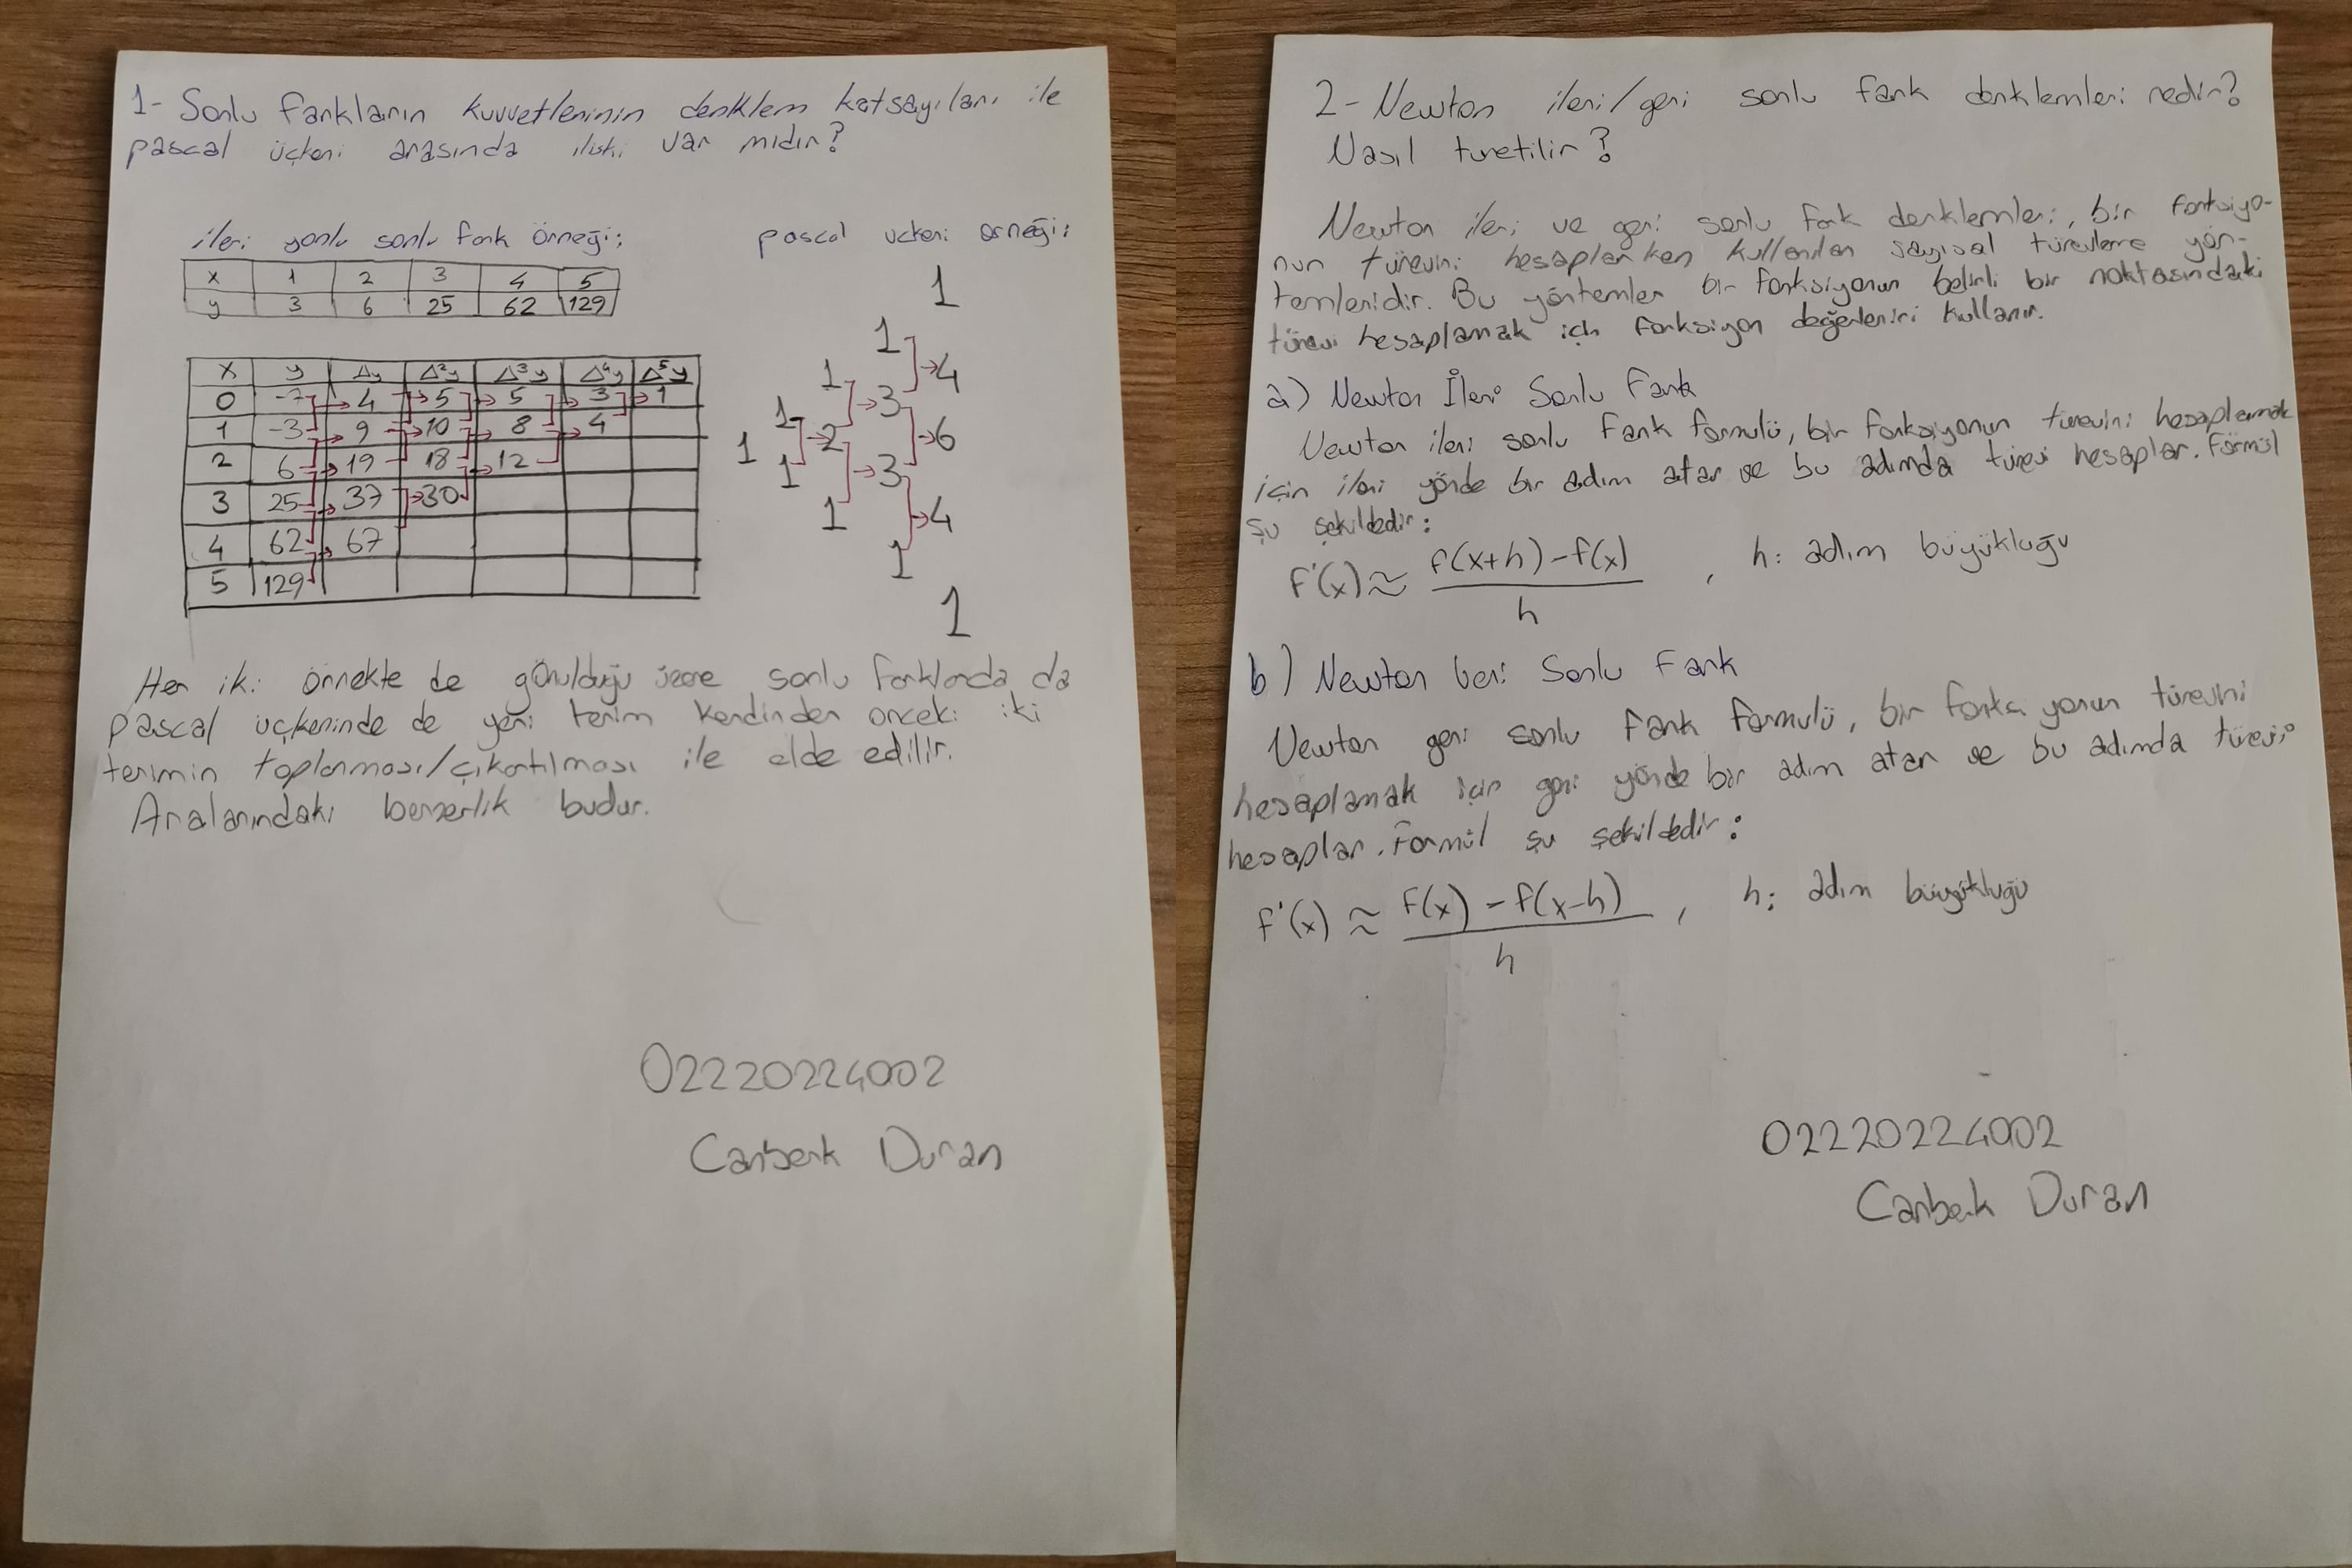 1- Sonlu farkların kuvvetlerinin denklem katsayıları ile
pascal üçkeni arasında iliski var mıdır?
ileri yonlu sonlu fark örneği:
x 1 2 3 4 5
y 3 6 25 62 129
x y Δy Δ²y Δ³y Δ⁴y Δ⁵y
0 -7 4 5 5 3 1
1 -3 9 10 8 4
2 6 19 18 12
3 25 37 30
4 62 67
5 129
pascal uckeni örneği:
1
1
1 4
1 3
1 2 6
1 3
1 4
1
1
Her iki örnekte de görüldüğü üzere sonlu farklarda da
pascal üçkeninde de yeni terim kendinden önceki iki
terimin toplanması/çıkartılması ile elde edilir.
Aralarındaki benzerlik budur.
02220224002
Canberk Duran
2- Newton ileri/geri sonlu fark denklemleri nedir?
Nasıl türetilir?
Newton ileri ve geri sonlu fark denklemleri, bir fonksiyo-
nun türevini hesaplarken kullanılan sayısal türevleme yön-
temleridir. Bu yöntemler bir fonksiyonun belirli bir noktasındaki
türevi hesaplamak için fonksiyon değerlerini kullanır.
a) Newton İleri Sonlu Fark
Newton ileri sonlu fark formülü, bir fonksiyonun türevini hesaplamak
için ileri yönde bir adım atar ve bu adımda türevi hesaplar. Formül
şu şekildedir:
f'(x) ≈ f(x+h)-f(x) / h , h: adım büyüklüğü
b) Newton Geri Sonlu Fark
Newton geri sonlu fark formülü, bir fonksiyonun türevini
hesaplamak için geri yönde bir adım atar ve bu adımda türevi
hesaplar. Formül şu şekildedir:
f'(x) ≈ f(x) - f(x-h) / h , h: adım büyüklüğü
02220224002
Canberk Duran